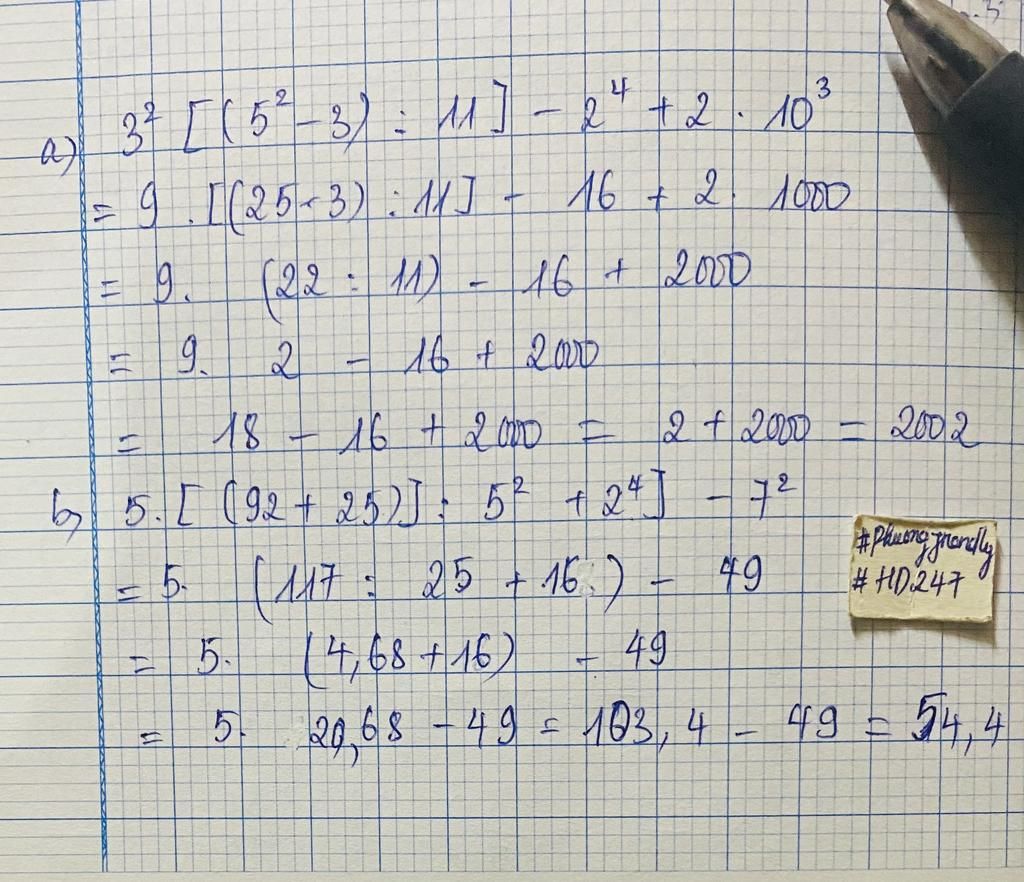 a) 3² [(5² - 3) : 11] - 2⁴ + 2 . 10³
= 9 . [(25 - 3) : 11] - 16 + 2 . 1000
= 9. (22 : 11) - 16 + 2000
= 9. 2 - 16 + 2000
= 18 - 16 + 2000 = 2 + 2000 = 2002
b) 5. [(92 + 25)] : 5² + 2⁴] - 7²
= 5. (117 : 25 + 16) - 49
= 5. (4,68 + 16) - 49
= 5. 20,68 - 49 = 103,4 - 49 = 54,4
#HD247